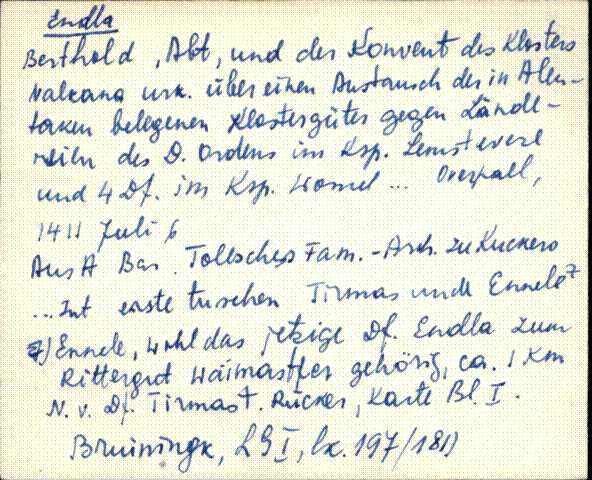 Endla
Berthold, Abt, und der Konvent des Klosters
Valkana urk. über einen Austausch der in Alen-
taken belegenen Klostergüter gegen Lände-
reien des D. Ordens im Ksp.
und 4 Df. im Ksp. ... Overpall,
1411 Juli 6
Aus A Bar. Tollsches Fam.-Arch. zu Kuckers
...Int erste tuschen Tirmas unde Ennele
Ennele, wohl das jetzige Df. Endla zum
Rittergut Waimastfer gehörig, ca. 1 Km
N. v. Df. Tirmast. Rücker, Karte Bl. I.
Bruiningk, LG I,